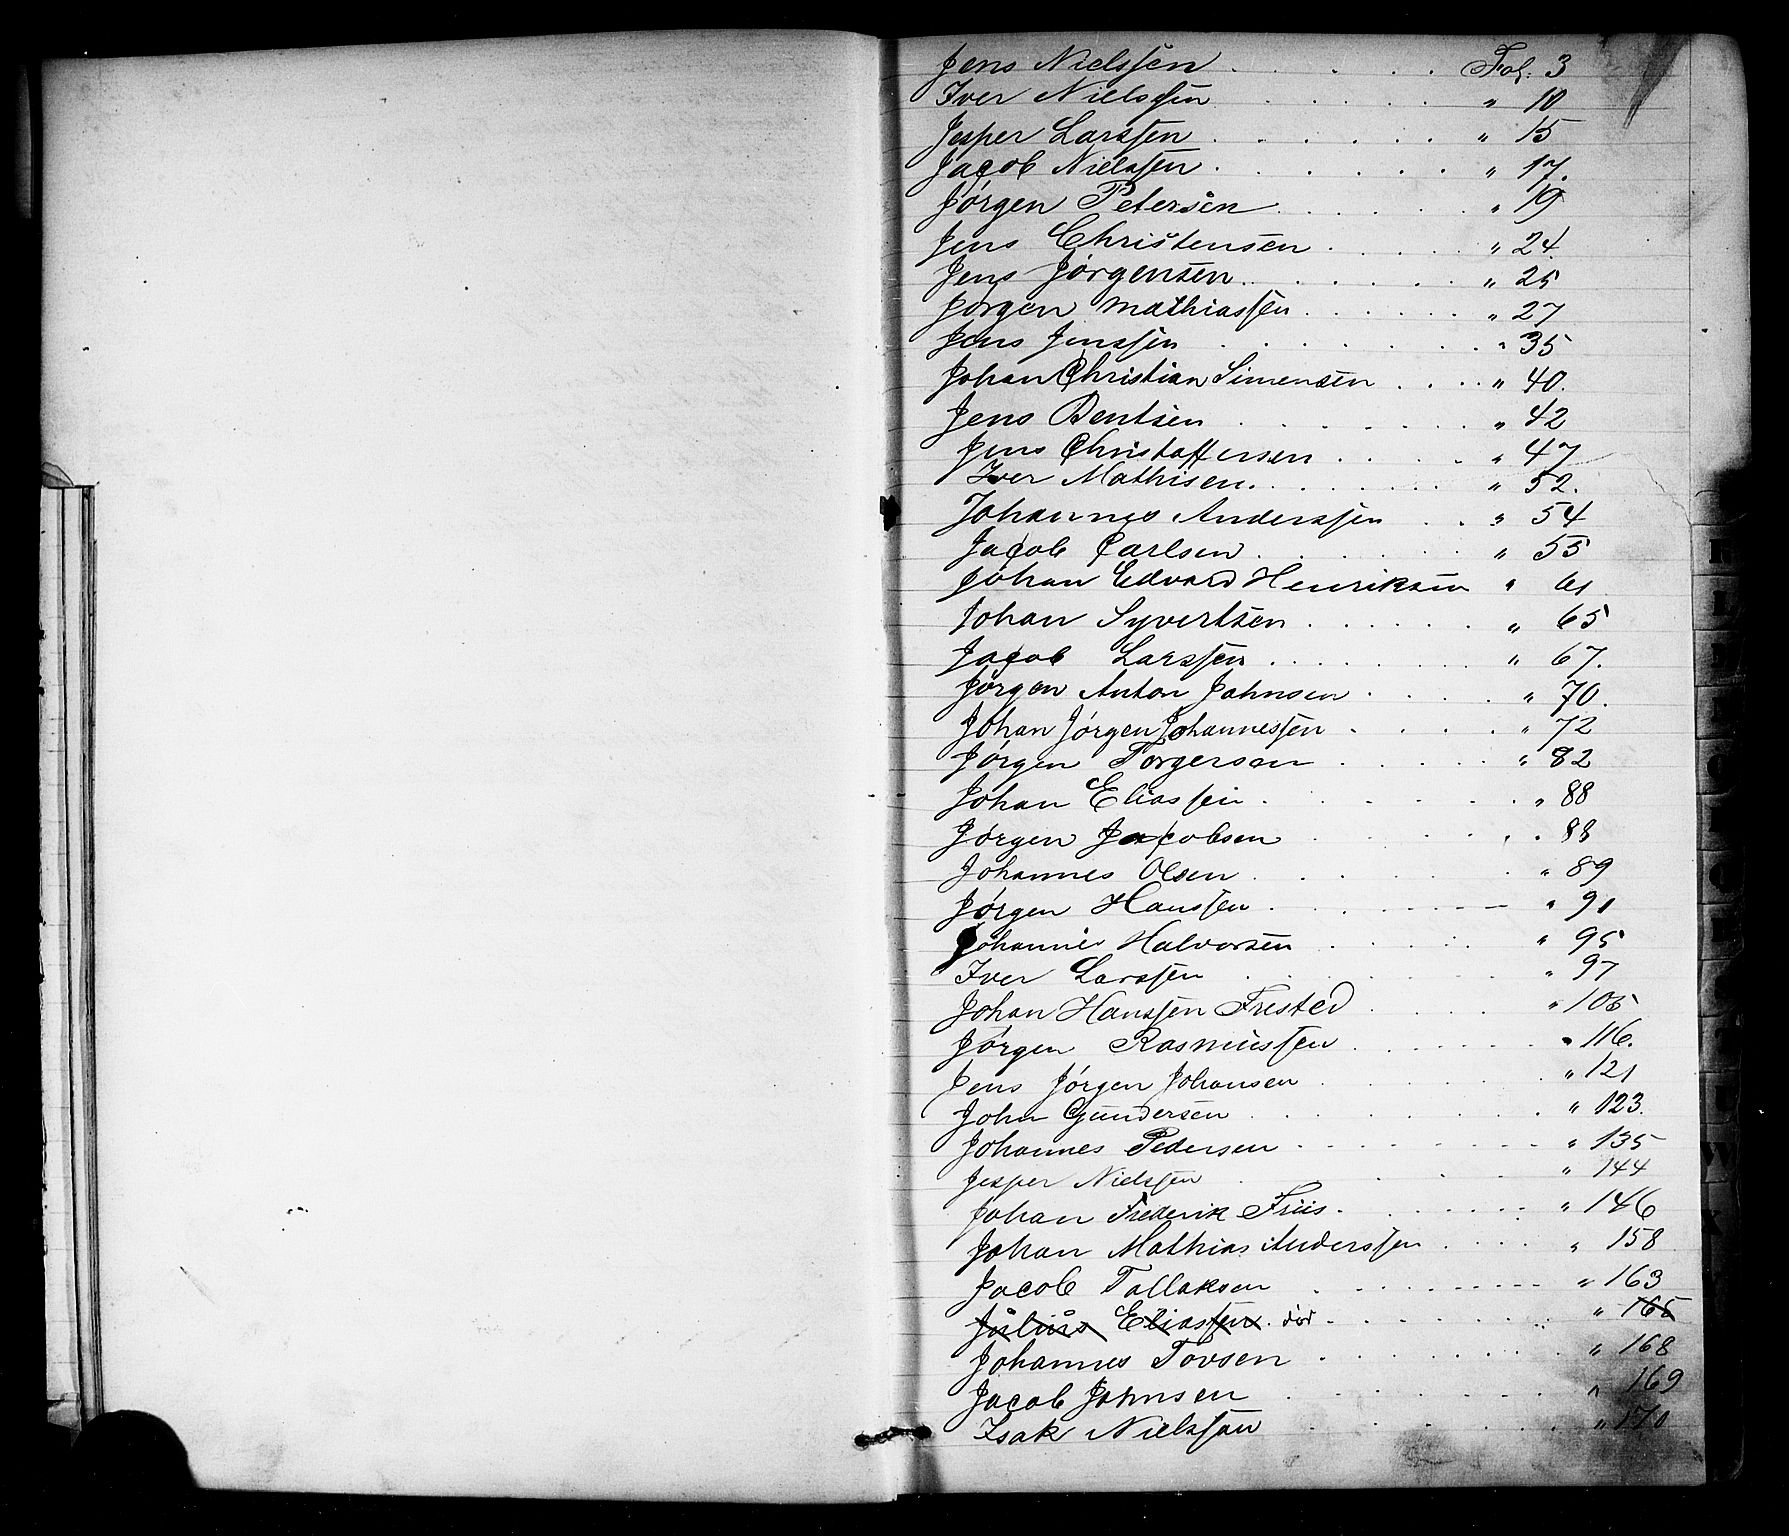 Jens Nielssen . . . . . . Fol. 3
Iver Nielssen . . . . . " 10
Jesper Larssen . . . . . . " 15
Jacob Nielssen . . . . . . " 17.
Jörgen Petersen . . . . . " 19
Jens Christensen . . . . " 24.
Jens Jörgensen . . . . . . " 25
Jörgen Mathiassen . . . . . . " 27
Jens Jenssen . . . . . . . " 35
Johan Christian Simensen . . . . " 40.
Jens Bentsen . . . . . . . " 42
Jens Christoffersen . . . . " 47
Iver Mathisen . . . . . . " 52.
Johannes Anderssen . . " 54
Jacob Carlsen . . . . . . " 55
Johan Edvard Henriksen " 61
Johan Syvertsen . . . . . . " 65
Jacob Larssen . . . . . . . " 67.
Jörgen Anton Johnsen . . . . " 70.
Johan Jörgen Johannessen . . . . " 72
Jörgen Torgersen . . . . . " 82
Johan Eliassen . . . . . . " 88
Jörgen Jacobsen . . . . . " 88
Johannes Olsen . . . . . " 89
Jörgen Hanssen . . . . . . " 91
Johannes Halvorsen . . . . " 95
Iver Larssen . . . . . " 97
Johan Hanssen Fristed . . . . " 105
Jörgen Rasmussen . . . . . " 116.
Jens Jörgen Johansen . . . . . " 121
John Gundersen . . . . . . " 123.
Johannes Pedersen . . . . . . " 135
Jesper Nielssen . . . . " 144
Johan Frederik Friis . . . . . " 146
Johan Mathias Anderssen . . . . " 158
Jacob Tallaksen . . . . . . " 163
Julius Eliassen. död . . . . . . " 165
Johannes Tovsen . . . . . . " 168
Jacob Johnsen . . . . . . " 169
Isak Nielssen . . . . " 170